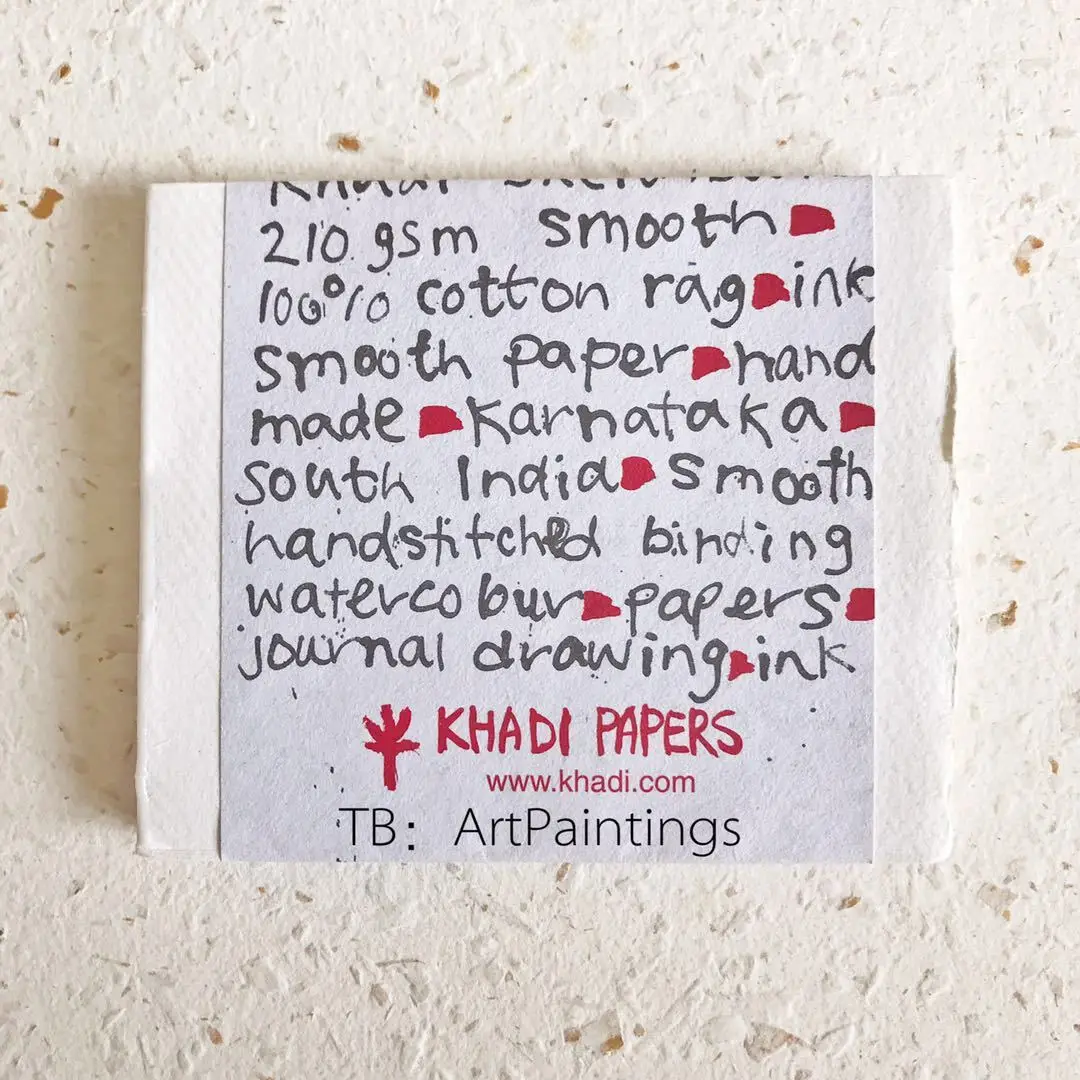 210 gsm smooth
100% cotton rag ink
smooth paper hand
made karnataka
south India smooth
handstitched binding
watercolour papers
journal drawing ink
KHADI PAPERS
www.khadi.com
TB: ArtPaintings